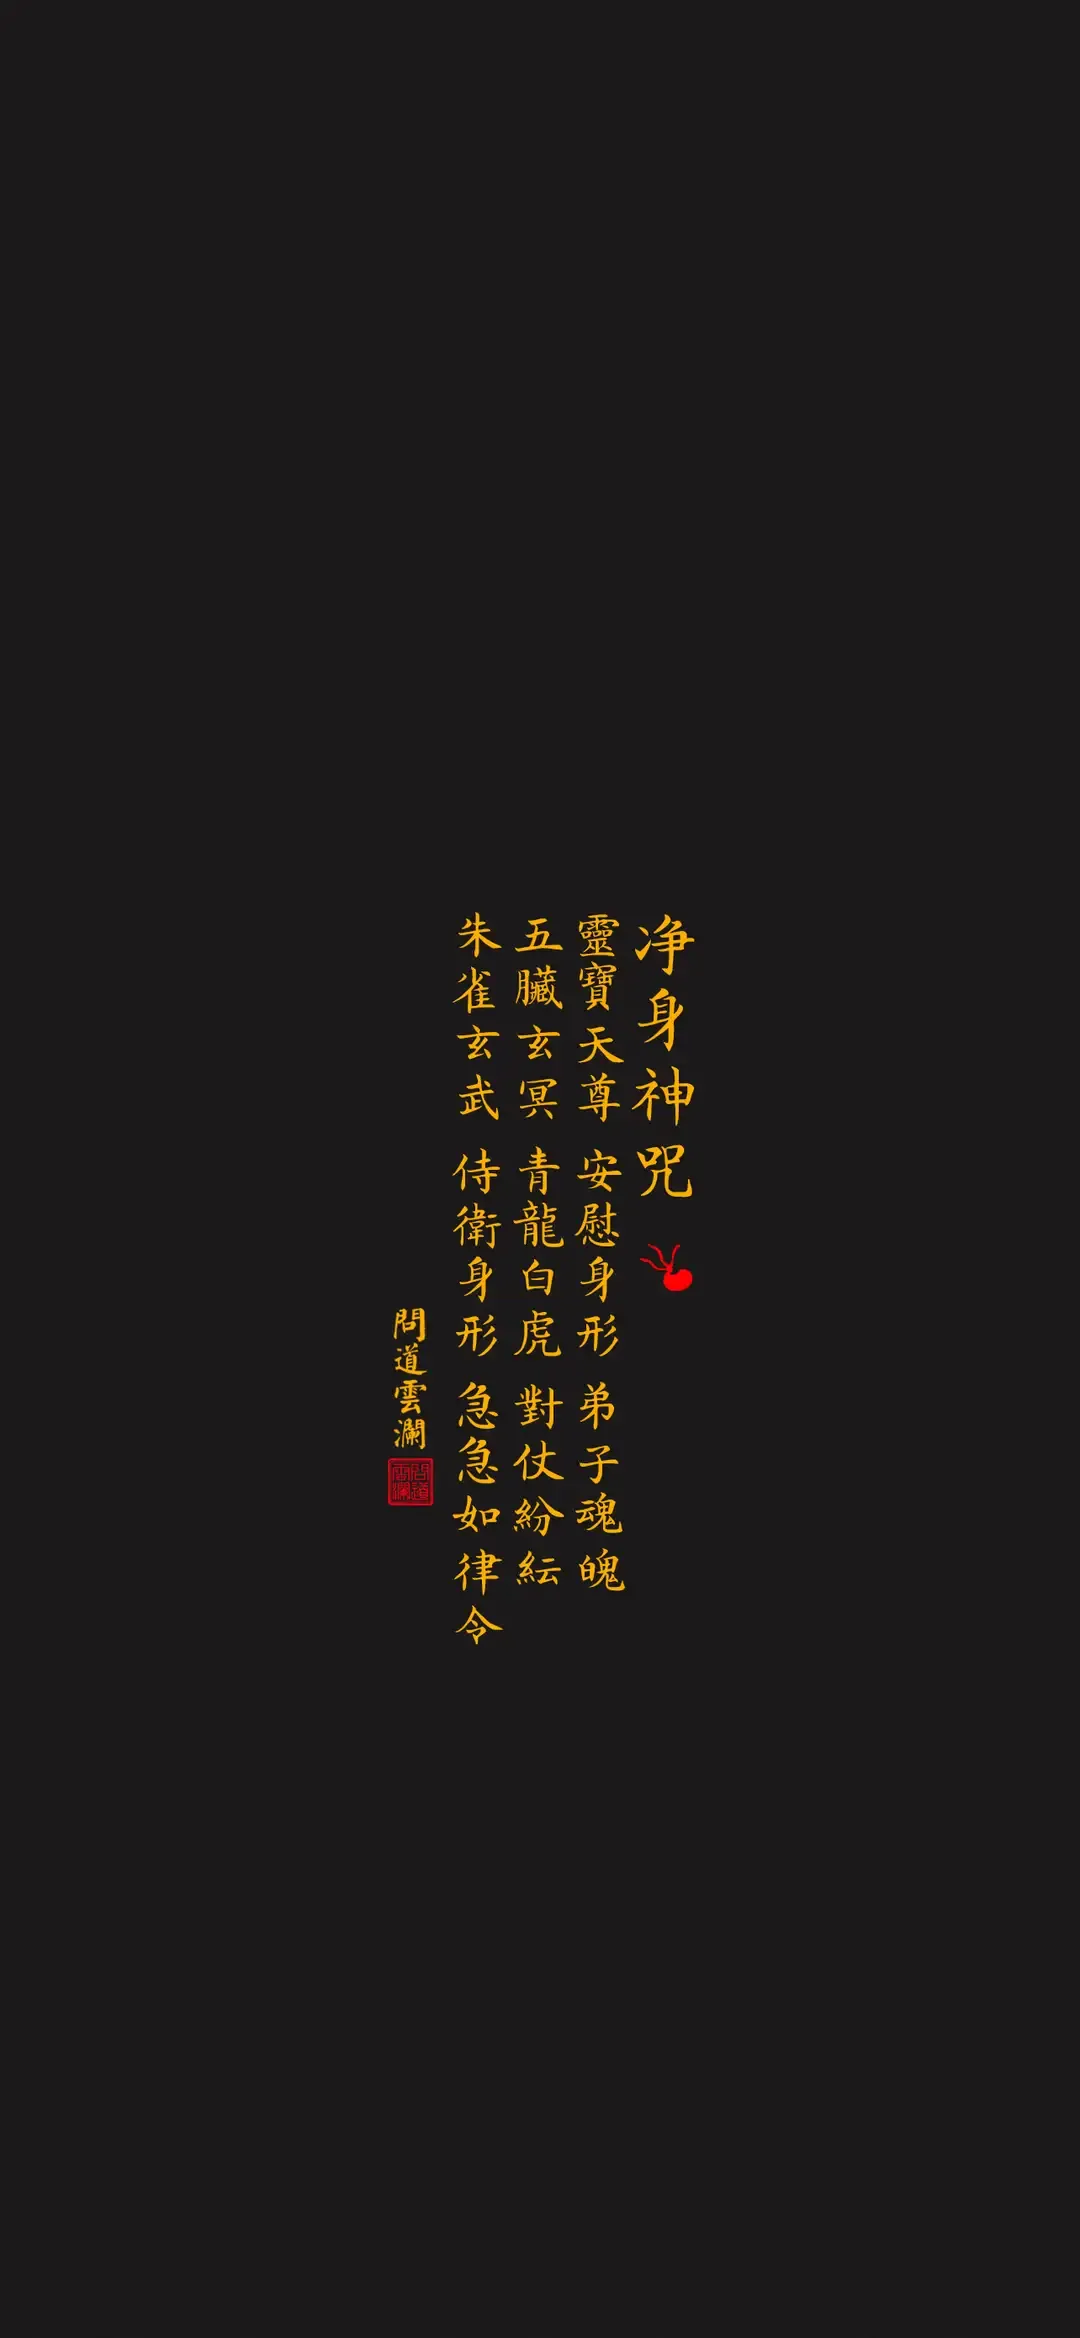 净身神咒
靈寶天尊 安慰身形 弟子魂魄
五臟玄冥 青龍白虎 對仗紛紜
朱雀玄武 侍衛身形 急急如律令
問道雲瀾
問道雲瀾